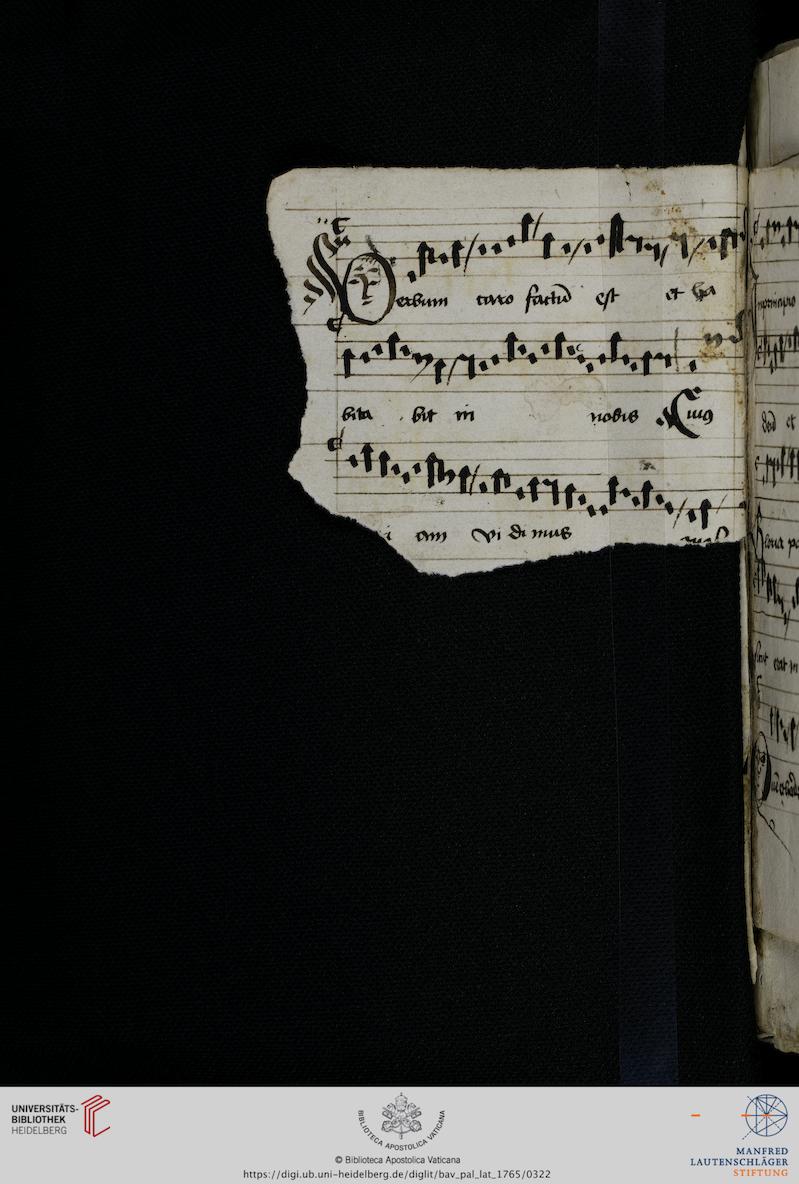 Verbum caro factū est et ha
bita bit in nobis Cuiꝯ
i am vi di mus
Gloria
UNIVERSITÄTS-
BIBLIOTHEK
HEIDELBERG
BIBLIOTECA APOSTOLICA VATICANA
© Biblioteca Apostolica Vaticana
https://digi.ub.uni-heidelberg.de/diglit/bav_pal_lat_1765/0322
MANFRED
LAUTENSCHLÄGER
STIFTUNG